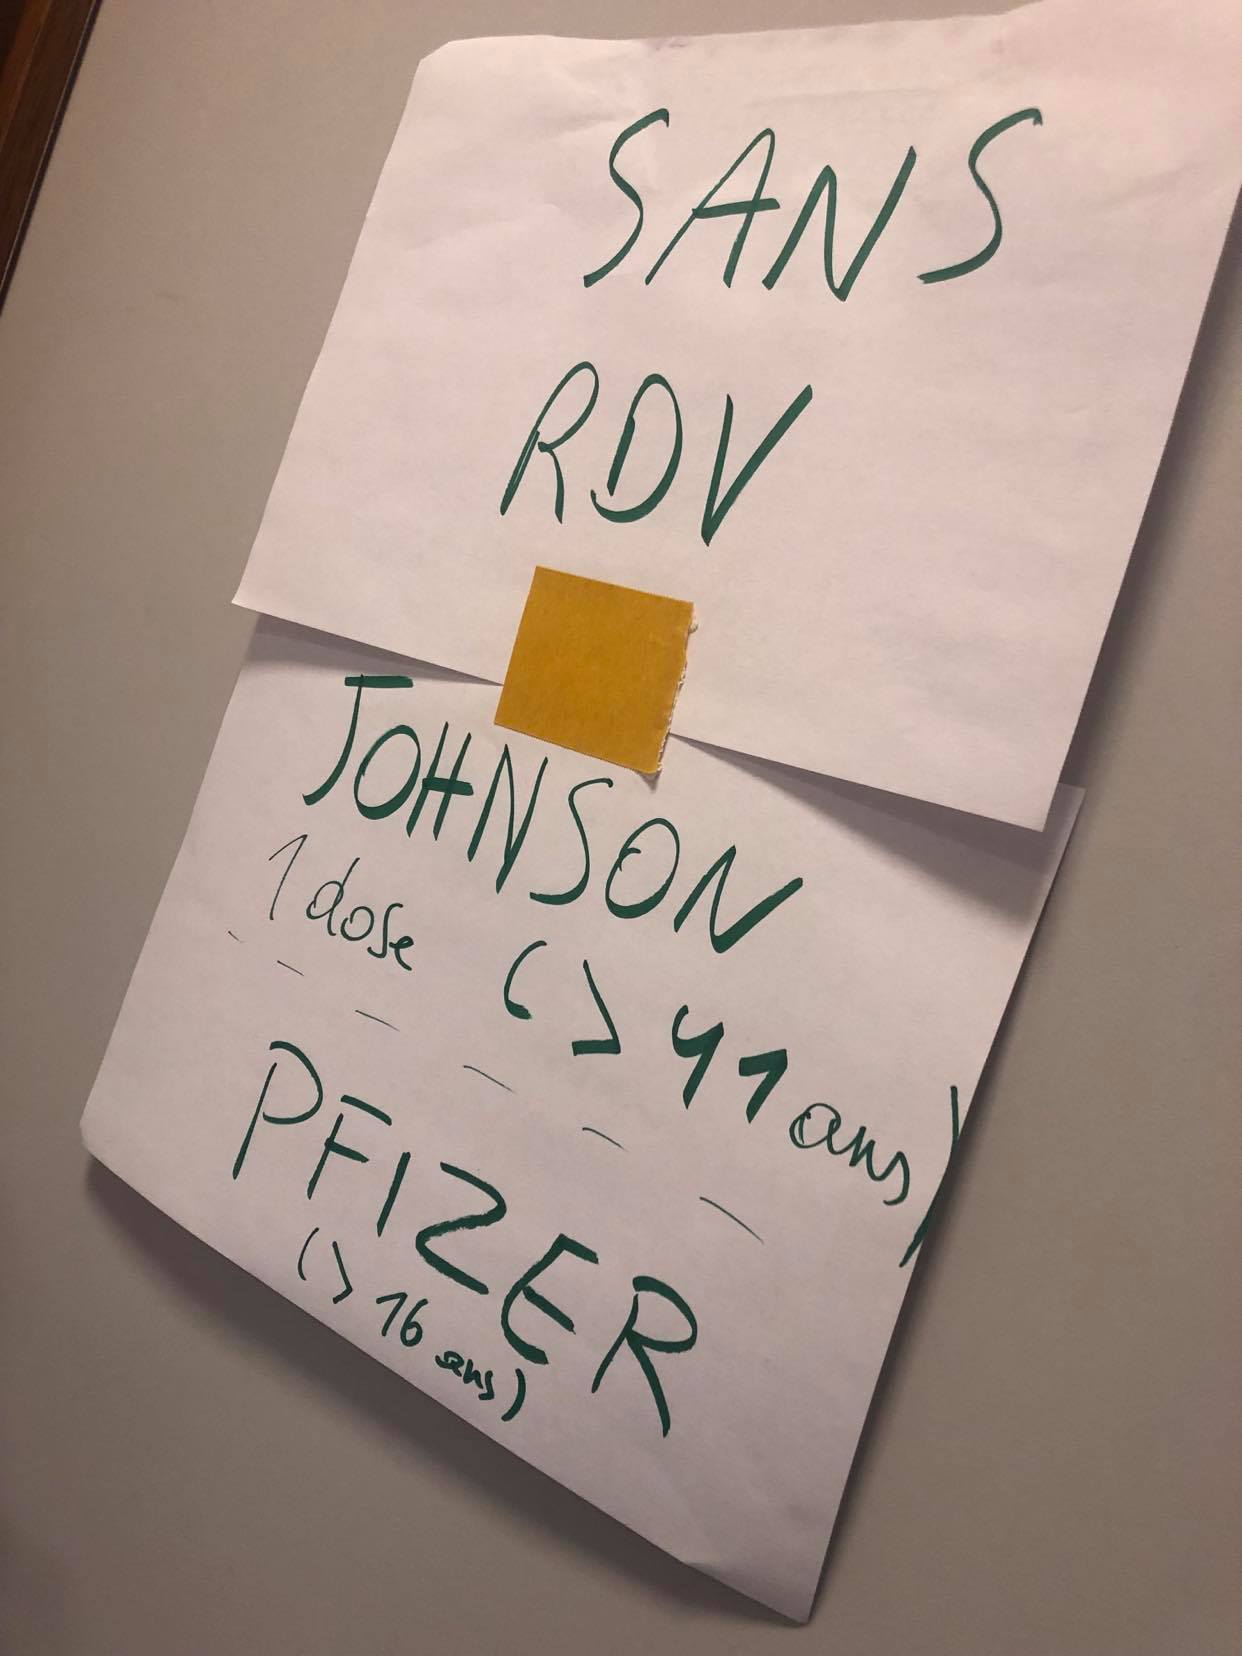 SANS
RDV
JOHNSON
1 dose (> 41 ans)
PFIZER
(> 16 ans)